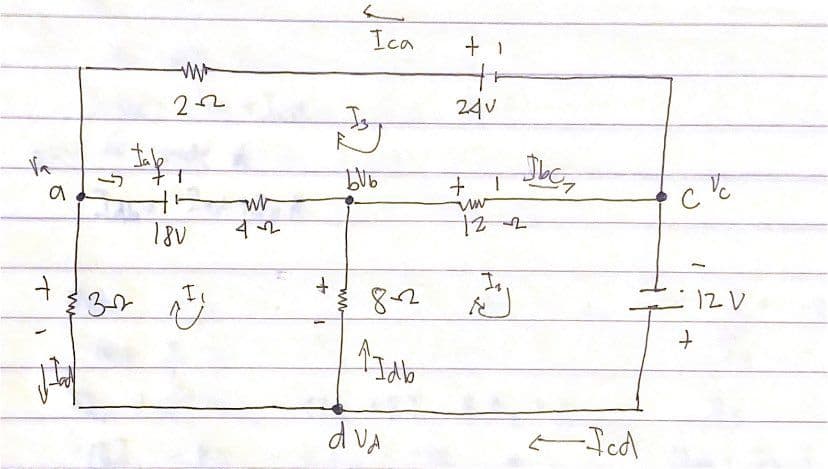 Ica
+ -
2Ω
24V
I3
Va Iab
+ -
bVb
+ - Ibc
a
c Vc
18V 4Ω
12Ω
+ 3Ω -
I1
+ 8Ω -
-
12V
+
Iad
Idb
d Vd
Icd